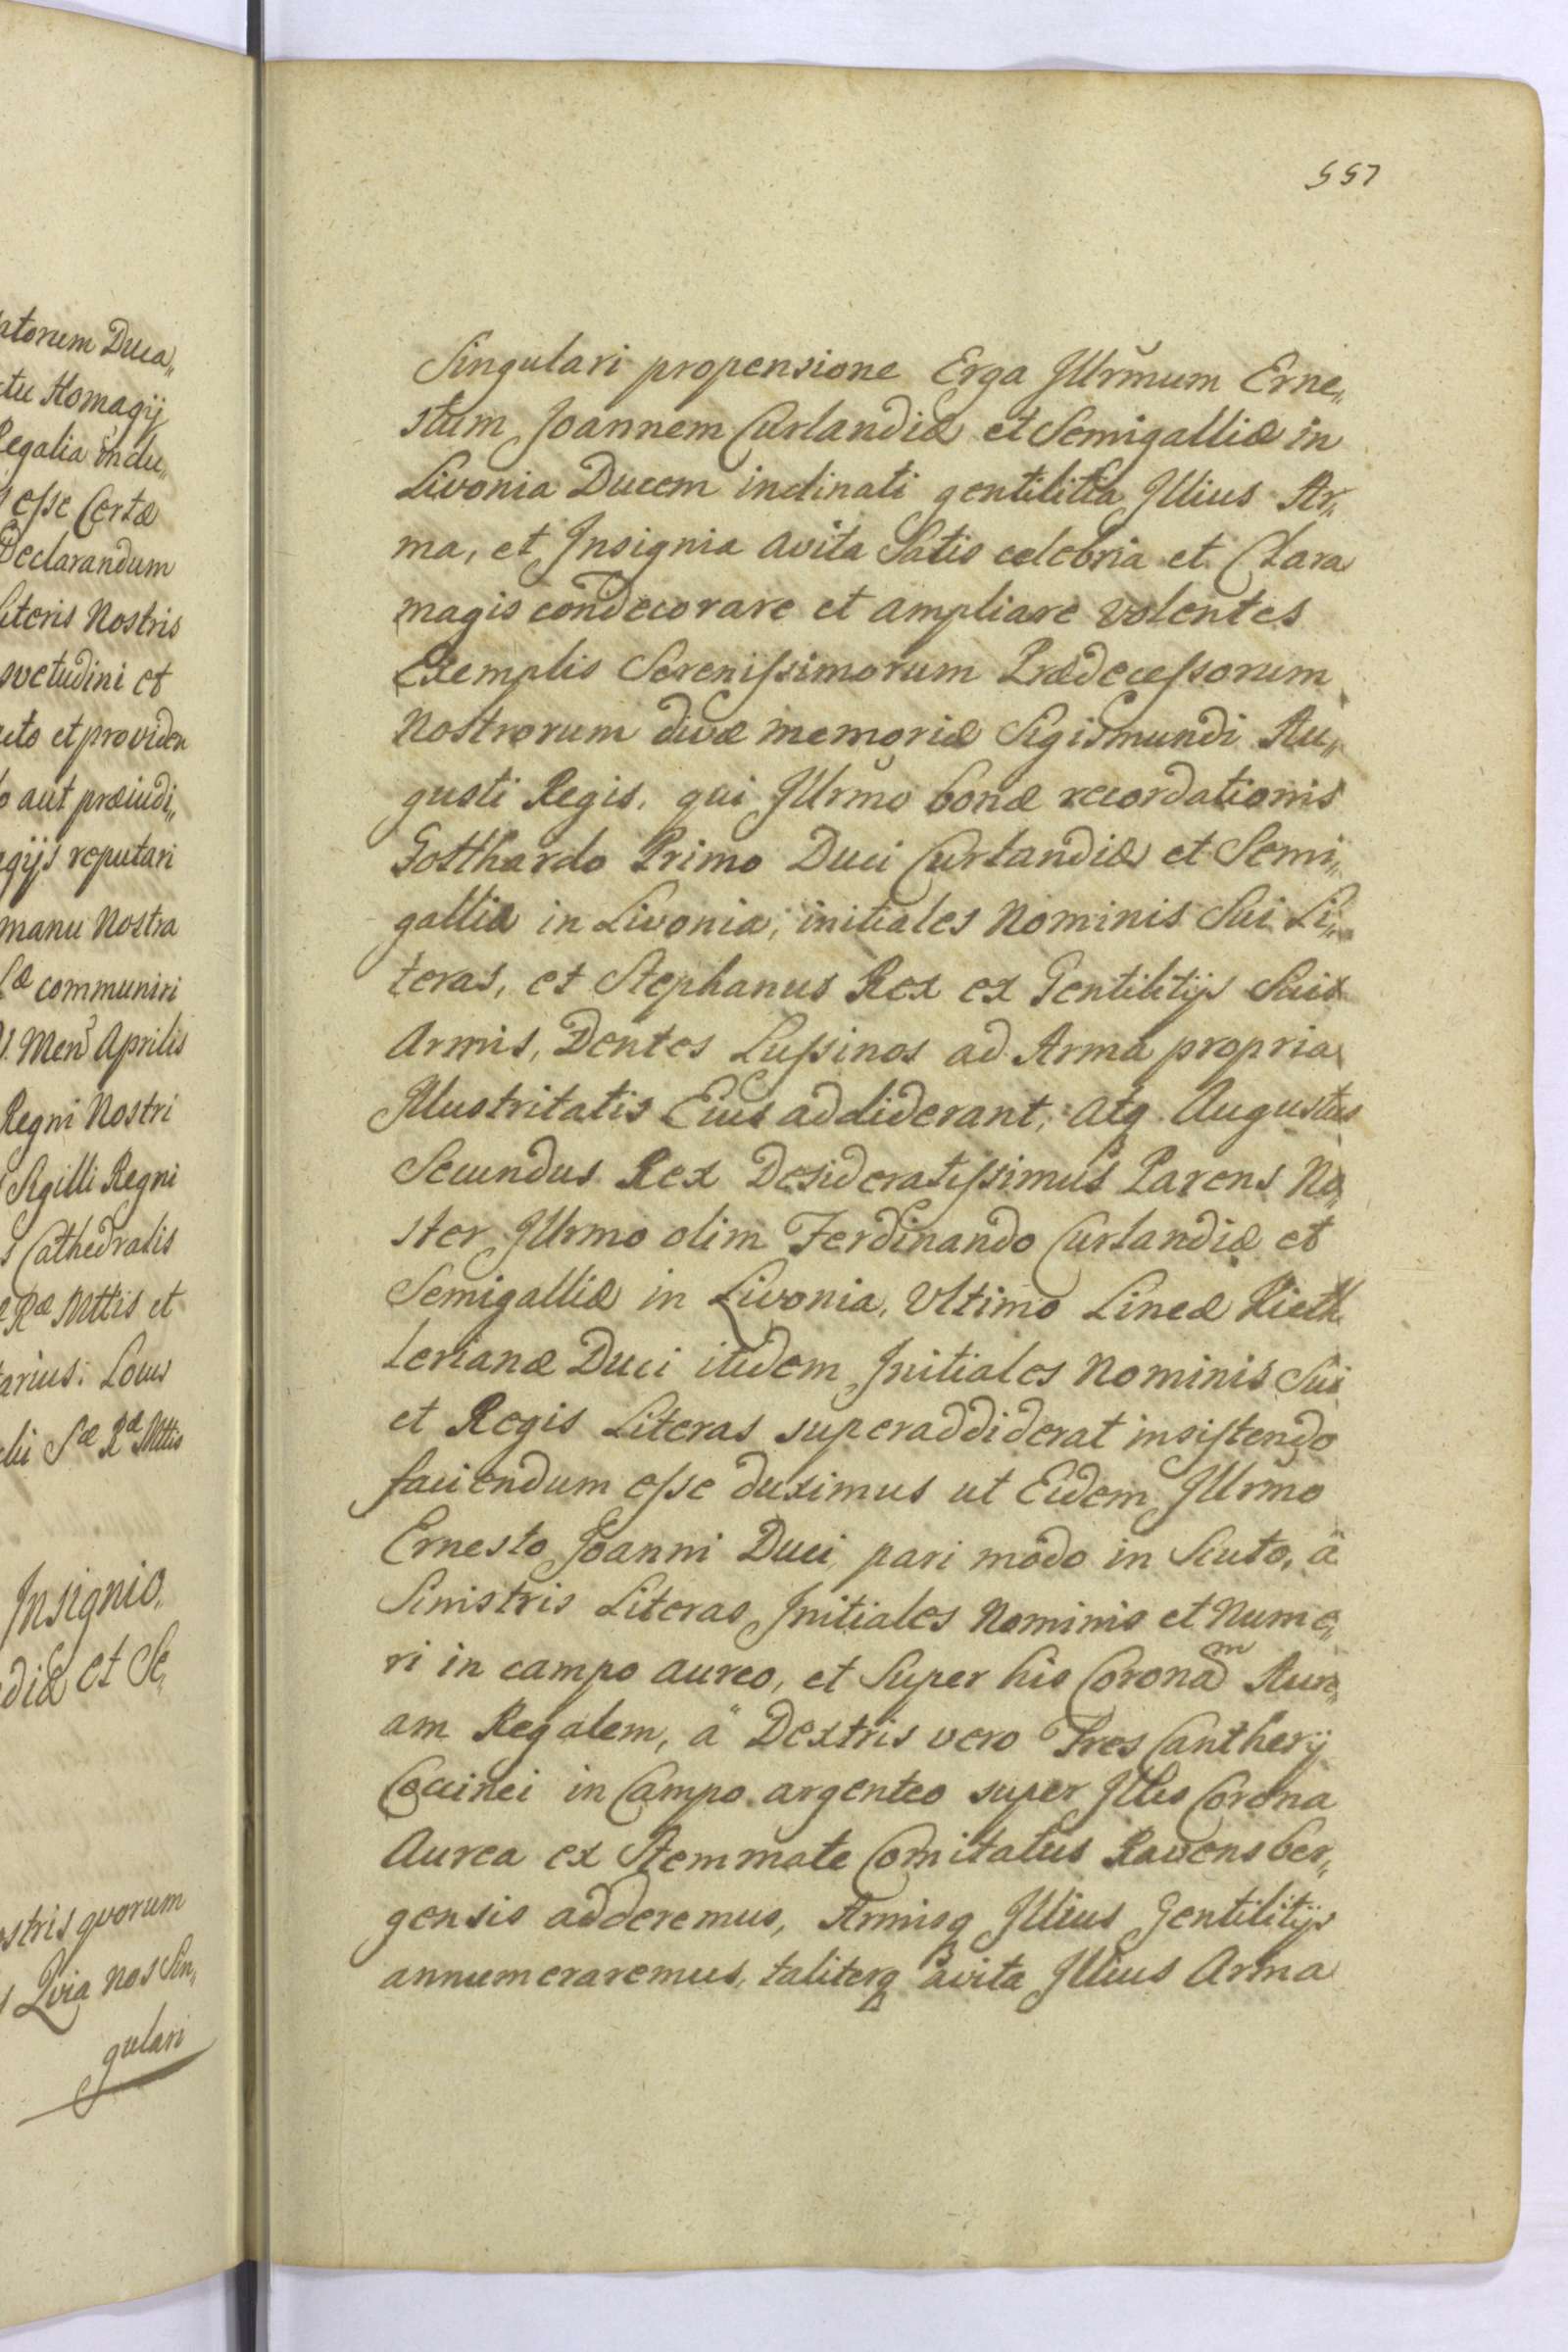 atorum Duca„
tu Homagij
Regalia indu„
esse Certæ
Declarandum
Literis Nostris
svetudini et
et providen
aut præiudi„
reputari
manu Nostra
communiri
Mens Aprilis
Regni Nostri
Sigilli Regni
Cathedralis
Ræ Mttis et
Locus
Sæ Ræ Mttis
Insignio„
diæ et Se„
stris quorum
Qvia nos Sin„
gulari
557
Singulari propensione Erga Jllrm̃um Erne„
stum Joannem Curlandiæ et Semigalliæ in
Livonia Ducem inclinati gentilitia Jllius Ar„
ma, et Jnsignia avita Satis celebria et Clara
magis condecorare et ampliare volentes
Exemplis Serenissimorum Prædecessorum
Nostrorum divæ memoriæ Sigismundi Au„
gusti Regis, qui Jllrm̃o bonæ recordationis
Gotthardo Primo Duci Curlandiæ et Semi„
galliæ in Livonia, initiales Nominis Sui Li„
teras, et Stephanus Rex ex Gentilitijs Suis
Armis, Dentes Lupinos ad Arma propria
Jllustritatis Eius addiderant, atq Augustus
Secundus Rex Desideratissimus Parens No„
ster Jllrmo olim Ferdinando Curlandiæ et
Semigalliæ in Livonia, Ultimo Lineæ Kieth„
lerianæ Duci itidem Jnitiales Nominis Sui
et Regis Literas superaddiderat insistendo
faciendum esse duximus ut Eidem Jllrmo
Ernesto Joanni Duci pari modo in Scuto, a
Sinistris Literas Jnitiales Nominis et Nume„
ri in campo aureo, et Super his Coronam Aure„
am Regalem, a Dextris vero Tres Cantherij
Coccinei in Campo argenteo super Jlles Corona
Aurea ex Stemmate Comitatus Ravensber„
gensis adderemus, Armisq Jllius Gentilitijs
annumeraremus, taliterq avita Jllius Arma